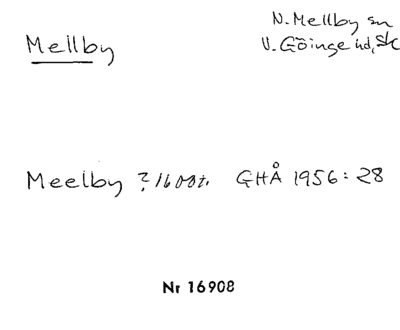 Mellby
N. Mellby sn
V. Göinge hd, Sk
Meelby ? 1600t. GHÅ 1956: 28
Nr 16908